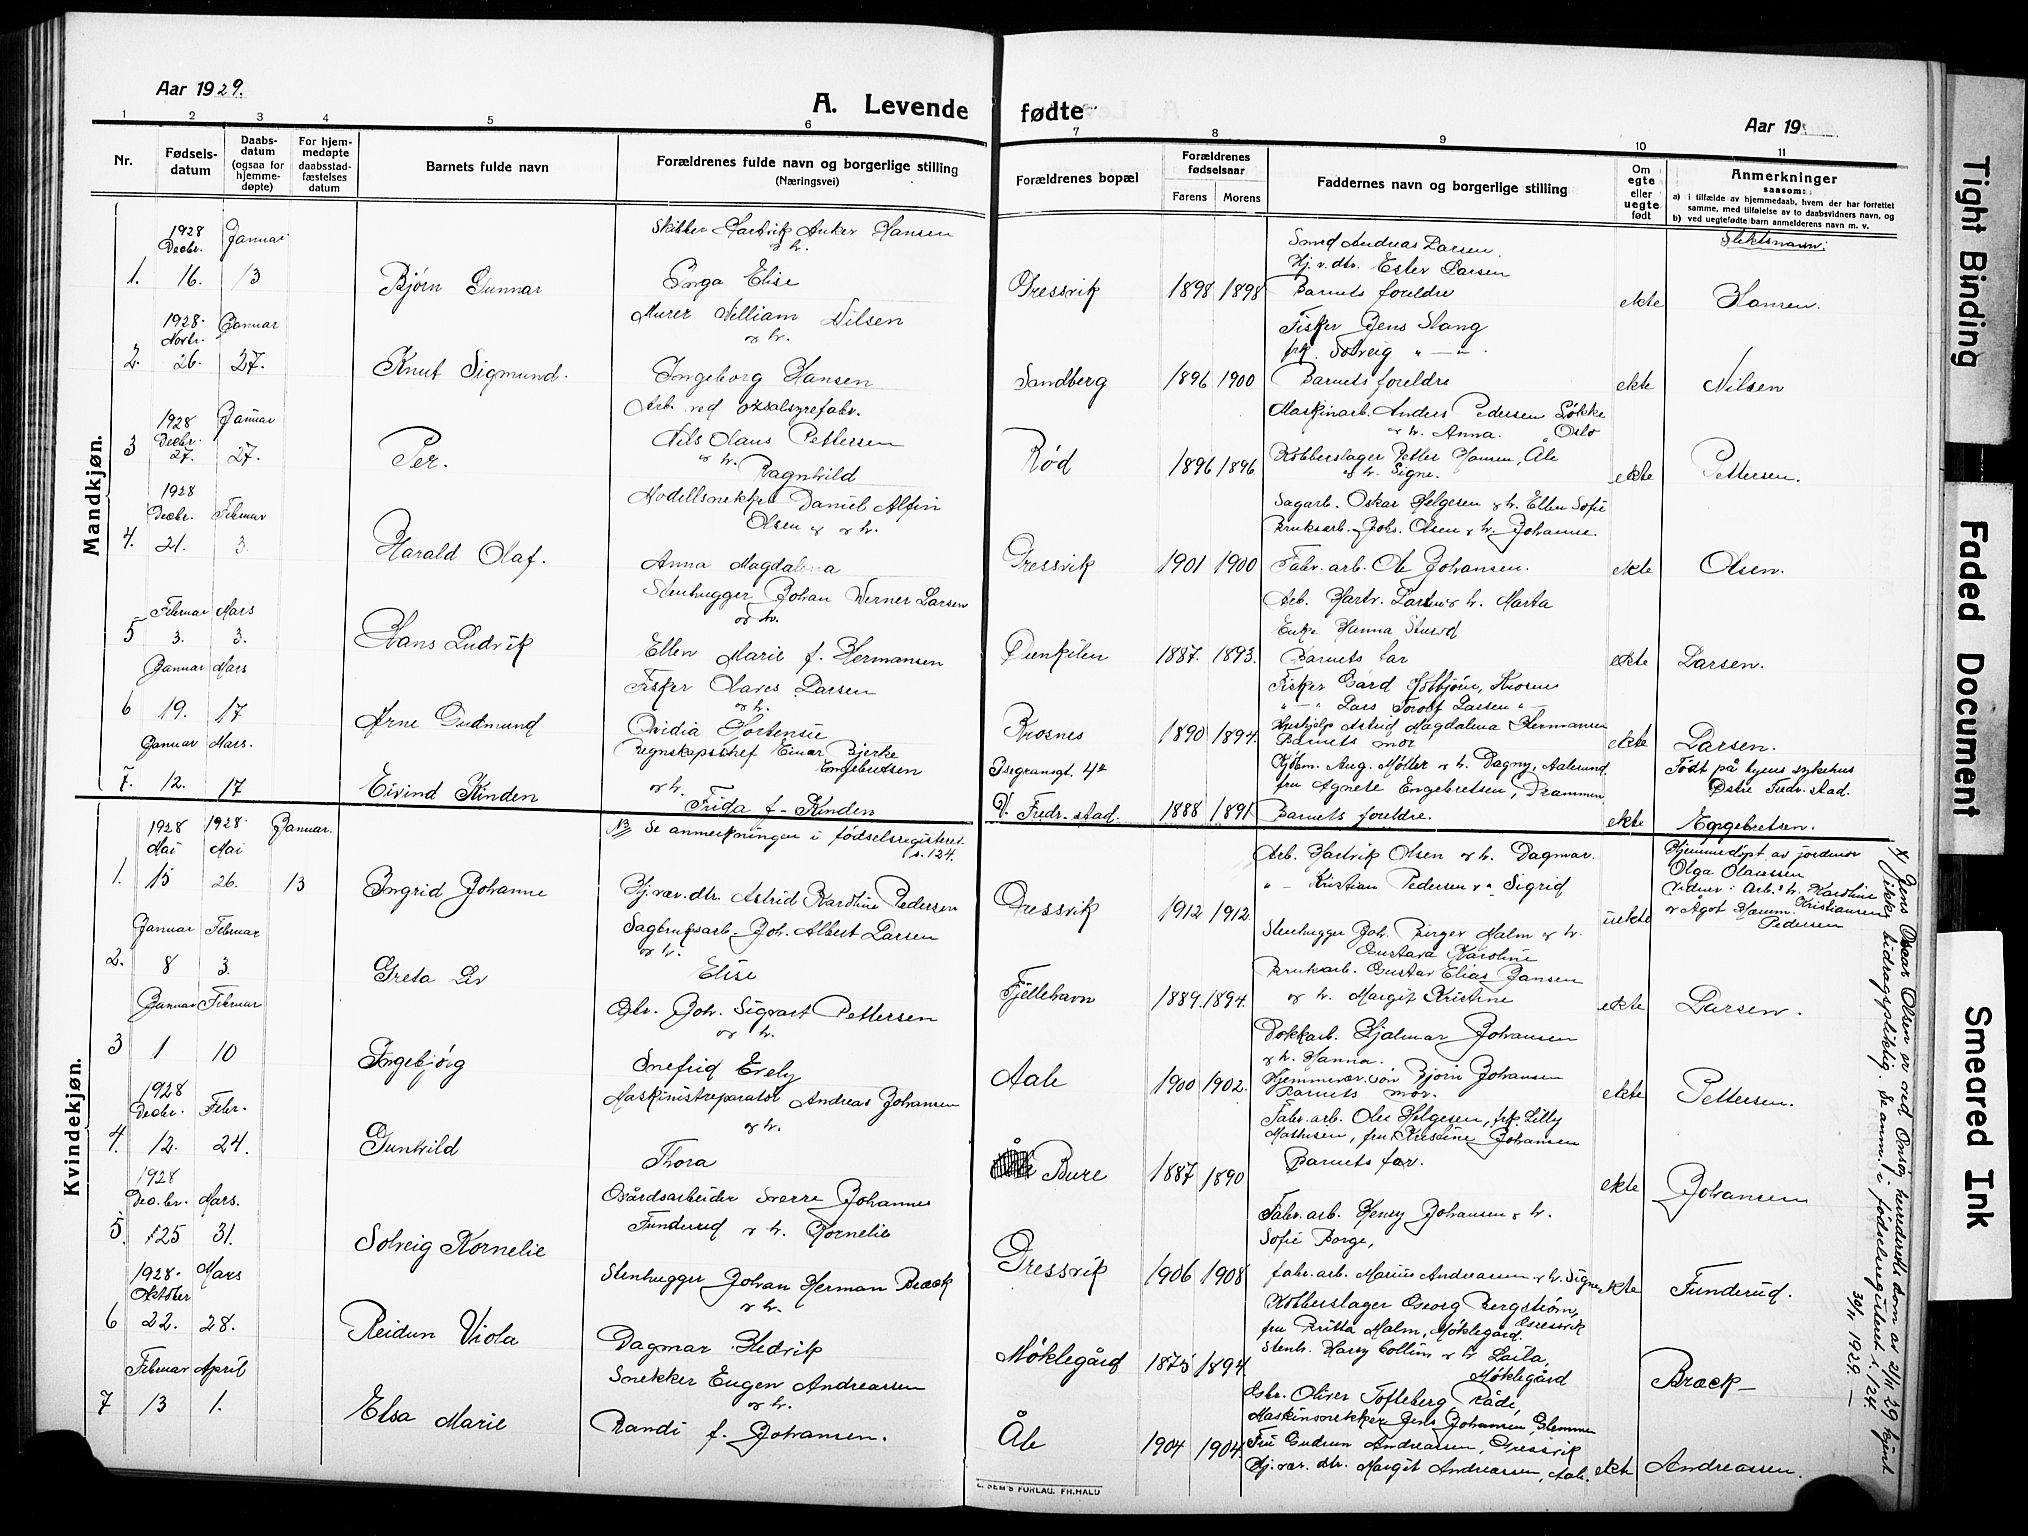 Aar 1929.
A. Levende fødte
Aar 19
1 2 3 4 5 6 7 8 9 10 11
Nr.
Fødsels-
datum
Daabs-
datum
(ogsaa for
hjemme-
døpte)
For hjem-
medøpte
daabsstad-
fæstelses
datum
Barnets fulde navn
Forældrenes fulde navn og borgerlige stilling
(Næringsvei)
Forældrenes bopæl
Forældrenes
fødselsaar
Farens Morens
Faddernes navn og borgerlige stilling
Om
egte
eller
uegte
født
Anmerkninger
saasom:
a) i tilfælde av hjemmedaab, hvem der har forrettet
samme, med tilføielse av to daabsvidners navn, og
b) ved uegtefødte barn anmelderens navn m. v.
Slektsnavn:
Mandkjøn.
1928 Januar
Decbr.
1. 16. 13
Bjørn Gunnar
Skibber Hartvik Anker Hansen
og h.
Inga Elise
Gressvik
1898 1898
Smed Andreas Larsen
Hj. v. dtr. Ester Larsen
Barnets foreldre
ekte
Hansen.
1928. Januar
Novbr.
2. 26. 27.
Knut Sigmund.
Murer William Nilsen
og h.
Ingeborg Hansen
Sandberg
1896 1900
Fisker Jens Stang
frk. Solveig " — "
Barnets foreldre
ekte
Nilsen
1928 Januar
Decbr.
3 27. 27.
Per.
Arb. ved oxsalsyrefabr.
Nils Olaus Pettersen
og h.
Ragnhild
Rød
1896 1896
Maskinarb. Anders Pedersen Løkke
og h. Anna. Oslo
Kobberslager Petter Hansen, Åle
og h. Signe.
ekte
Pettersen.
1928
Decbr. Februar
4. 21. 3.
Harald Olaf.
Modellsnekker Daniel Alfin
Olsen og h.
Anna Magdalena
Gressvik
1901 1900
Sagarb. Oskar Helgesen og h. Ellen Sofie
Bruksarb. Johs. Olsen og h. Johanne.
Fabr. arb. Ole Johansen.
ekte
Olsen.
Februar Mars
5 3. 3.
Hans Ludvik
Stenhugger Johan Verner Larsen
og h.
Ellen Marie f. Hermansen
1887. 1893.
Arb. Hartv. Larsen og h. Marta
Enke Hanna
Barnets far
ekte
Larsen.
Januar Mars
6 19. 17
Arne Gudmund
Fisker Olaves Larsen
og h.
Ovidia Hortensie
Krosnes
1890 1894.
Fisker Gard Kolbjørn, Krosnes
" — " Lars Torolf Larsen " —
Hushjelp Astrid Magdalena Hermansen
Barnets mor
ekte
Larsen.
Januar Mars.
7. 12. 17
Eivind Kinden
Regnskapschef Einar Bjerke
Engebretsen
og h.
Frida f. Kinden
V. Fredr.stad.
1888 1891
Kjøbm. Aug. Møller og h. Dagny, Aalesund.
fru Agnete Engebretsen, Drammen
Barnets foreldre.
ekte
Født på byens sykehus
Østre Fredr.stad.
Engebretsen.
Kvindekjøn.
1928 1928. Januar.
Mai Mai
1. 15 26. 13
Ingrid Johanne
NB Se anmerkningen i fødselsregisteret
s. 124.
Hj. vær. dtr. Astrid Karoline Pedersen
Gressvik
1912 1912.
Arb. Hartvik Olsen og h. Dagmar.
" — Kristian Pedersen og " Sigrid
uekte
Hjemmedøpt av jordmor
Olga Olavessen
Vidner: Arb. h. Karoline
Kristiansen
og Ågot
Pedersen
Januar Februar
2. 8 3.
Greta Liv
Sagbruksarb. Joh. Albert Larsen
og h.
Elise
Fjellehavn
1889. 1894.
Stenhugger Joh. Birger Malm og h.
Gustava Karoline
Brukarb. Gustav Elias Jansen
og h. Margit Kristine
ekte
Larsen.
Januar Februar
3 1 10
Ingebjørg
Gbr. Joh. Sigvart Pettersen
og h.
Snefrid Evely
Aale
1900 1902.
Dokkarb. Hjalmar Johansen
og h. Hanna.
Hjemmevær. søn Bjørn Johansen
Barnets mor.
ekte
Pettersen.
1928
Decbr. Febr.
4. 12. 24.
Gunhild
Maskinistreparatør Andreas Johansen
og h.
Thora
Bure
1887 1890
Fabr. arb. Ole Helgesen, frk. Lilly
Mathisen, fru Kristine Johansen
Barnets far.
ekte
Johansen
1928
Decbr. Mars.
5. 25 31.
Solveig Kornelie
Gårdsarbeider Sverre Johannes
Funderud og h. Kornelie
Gressvik
1906 1908
Fabr. arb. Henry Johansen og h.
Sofie Borge,
fabr. arb. Marius Andreassen og h. Signe
ekte
Funderud.
1928. Mars
Oktober
6 22. 28.
Reidun Viola
Stenhugger Johan Herman Bræck
og h.
Dagmar Hedvik
Møklegård
1875 1894
Kobberslager Georg Bergstrøm,
Gressvik
fru Britta Malm, Møklegård.
Stenh. Harry Collin og h. Laila,
Møklegård
Bræck —
Februar April
7 13 1.
Elsa Marie
Snekker Eugen Andreassen
og h.
Randi f. Johansen.
Åle
1904 1904.
Gbr. Oliver Tofteberg Råde,
Maskinsnekker Jens Johansen, Glemmen
Fru Gudrun Andreassen, Gressvik
Hj. vær. dtr. Margit Andreassen, Aale.
ekte
Andreassen.
x Jens Oscar Olsen er ved Onsøy herredsretts dom av 21/11 29 kjent
ikke bidragspliktig. Se anm. i fødselsregisteret s. 124.
30/11 1929. —
FORLAG. FR.HALD
Tight Binding
Faded Document
Smeared Ink